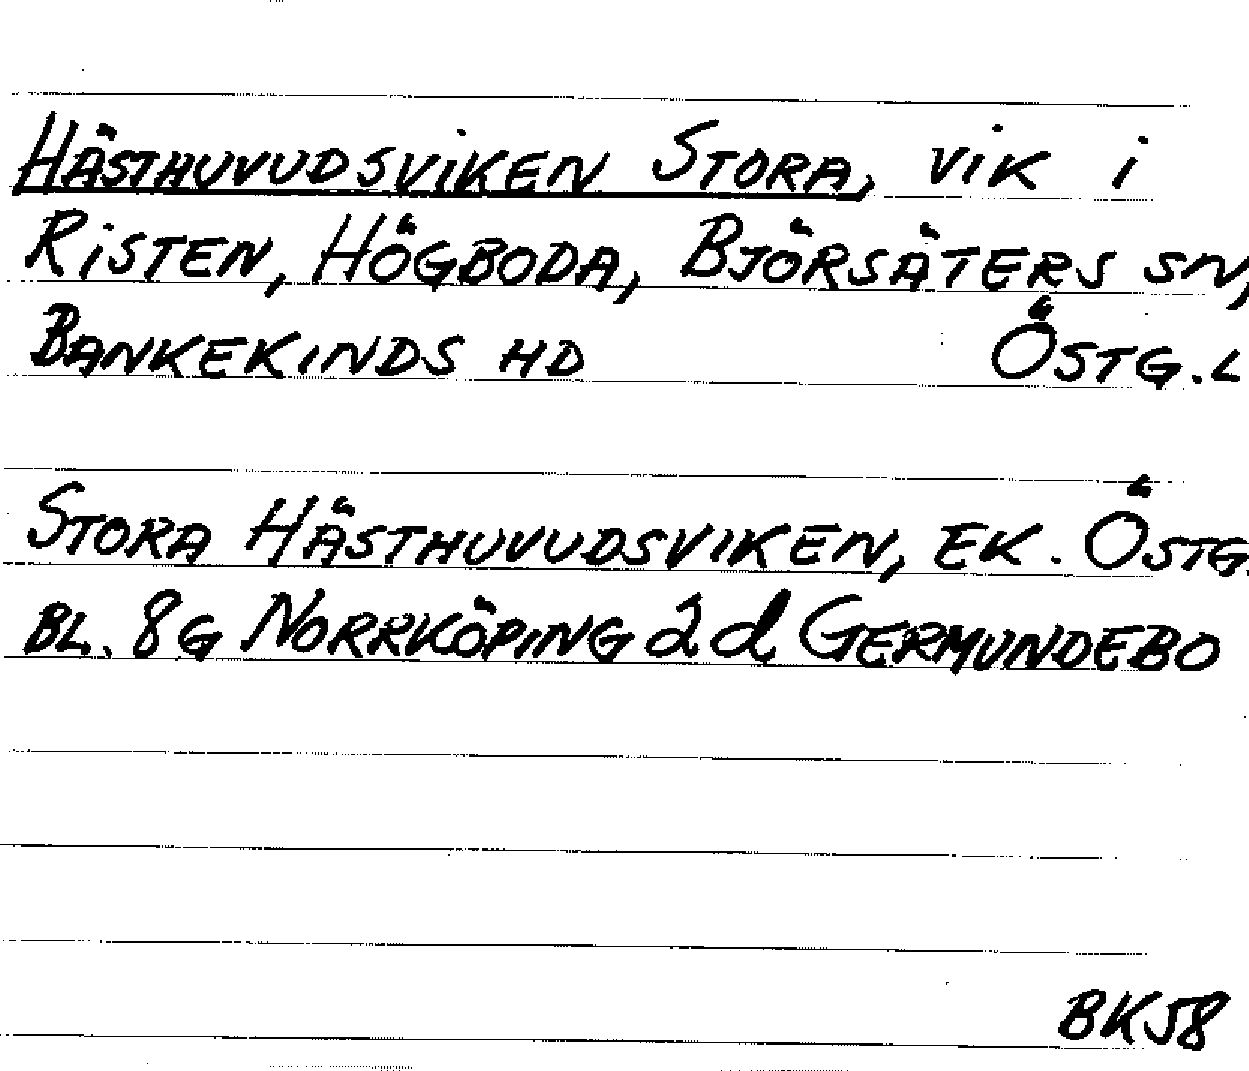 HÄSTHUVUDSVIKEN STORA, VIK I
RISTEN, HÖGBODA, BJÖRSÄTERS SN,
BANKEKINDS HD ÖSTG. L
STORA HÄSTHUVUDSVIKEN, EK. ÖSTG.
BL. 8G NORRKÖPING 2d GERMUNDEBO
BK58